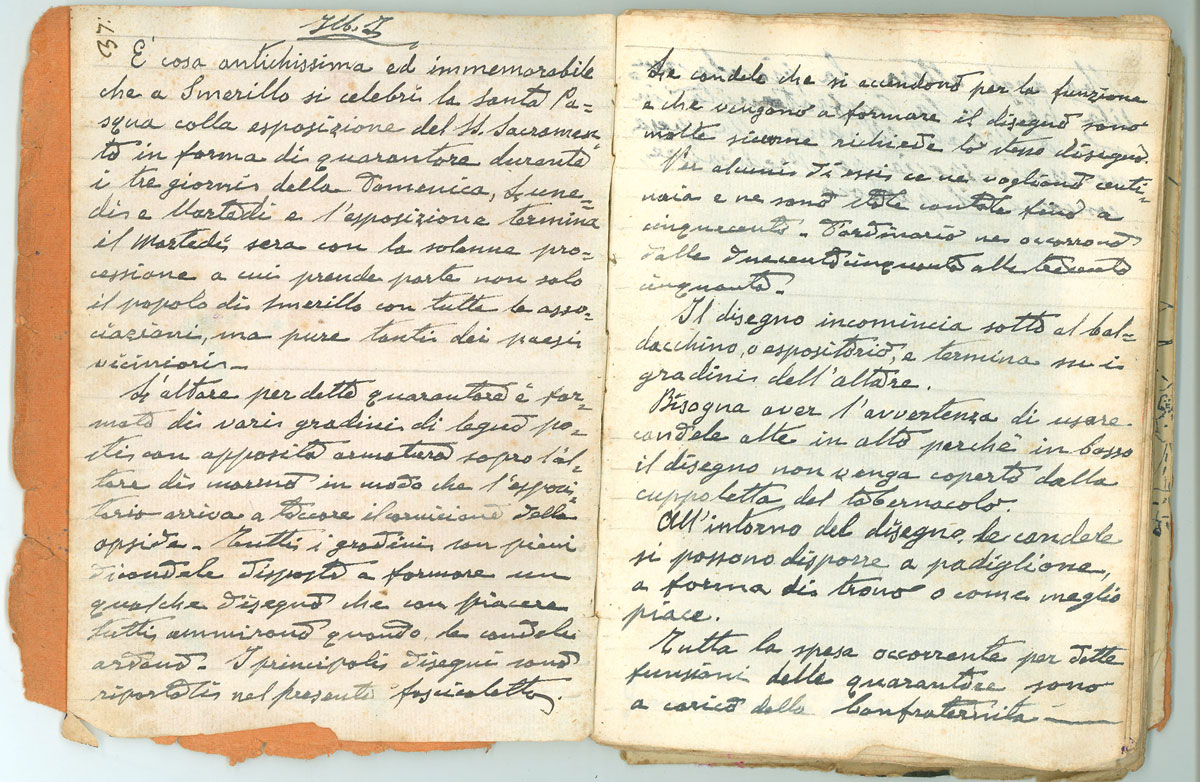 37.
È cosa antichissima ed immemorabile
che a Smerillo si celebri la santa Pa=
squa colla esposizione del SS. Sacramen=
to in forma di quarantore durante
i tre giorni della Domenica, Lune=
dì e Martedì e l'esposizione termina
il Martedì sera con la solenne pro=
cessione a cui prende parte non solo
il popolo di Smerillo con tutte le asso=
ciazioni, ma pure tanti dei paesi
viciniori.
L'altare per dette quarantore è for=
mato di vari gradini di legno po=
sti con apposita armatura sopra l'al=
tare di marmo in modo che l'esposi=
torio arriva a toccare il cornicione della
apside. Tutti i gradini son pieni
di candele disposte a formare un
qualche disegno che con piacere
tutti ammirano quando le candele
ardono. I principali disegni sono
riportati nel presente fascicoletto.
Le candele che si accendono per la funzione
e che vengono a formare il disegno sono
molte siccome richiede lo stesso disegno.
Per alcuni di essi ce ne vogliono centi=
naia e ne sono state contate fino a
cinquecento. D'ordinario ne occorrono
dalle duecentocinquanta alle trecento
cinquanta.
Il disegno incomincia sotto al bal=
dacchino, o espositorio, e termina su i
gradini dell'altare.
Bisogna aver l'avvertenza di usare
candele alte in alto perchè in basso
il disegno non venga coperto dalla
cuppoletta del tabernacolo.
All'intorno del disegno, le candele
si possono disporre a padiglione,
a forma di trono o come meglio
piace.
Tutta la spesa occorrente per dette
funzioni delle quarantore sono
a carico della Confraternita